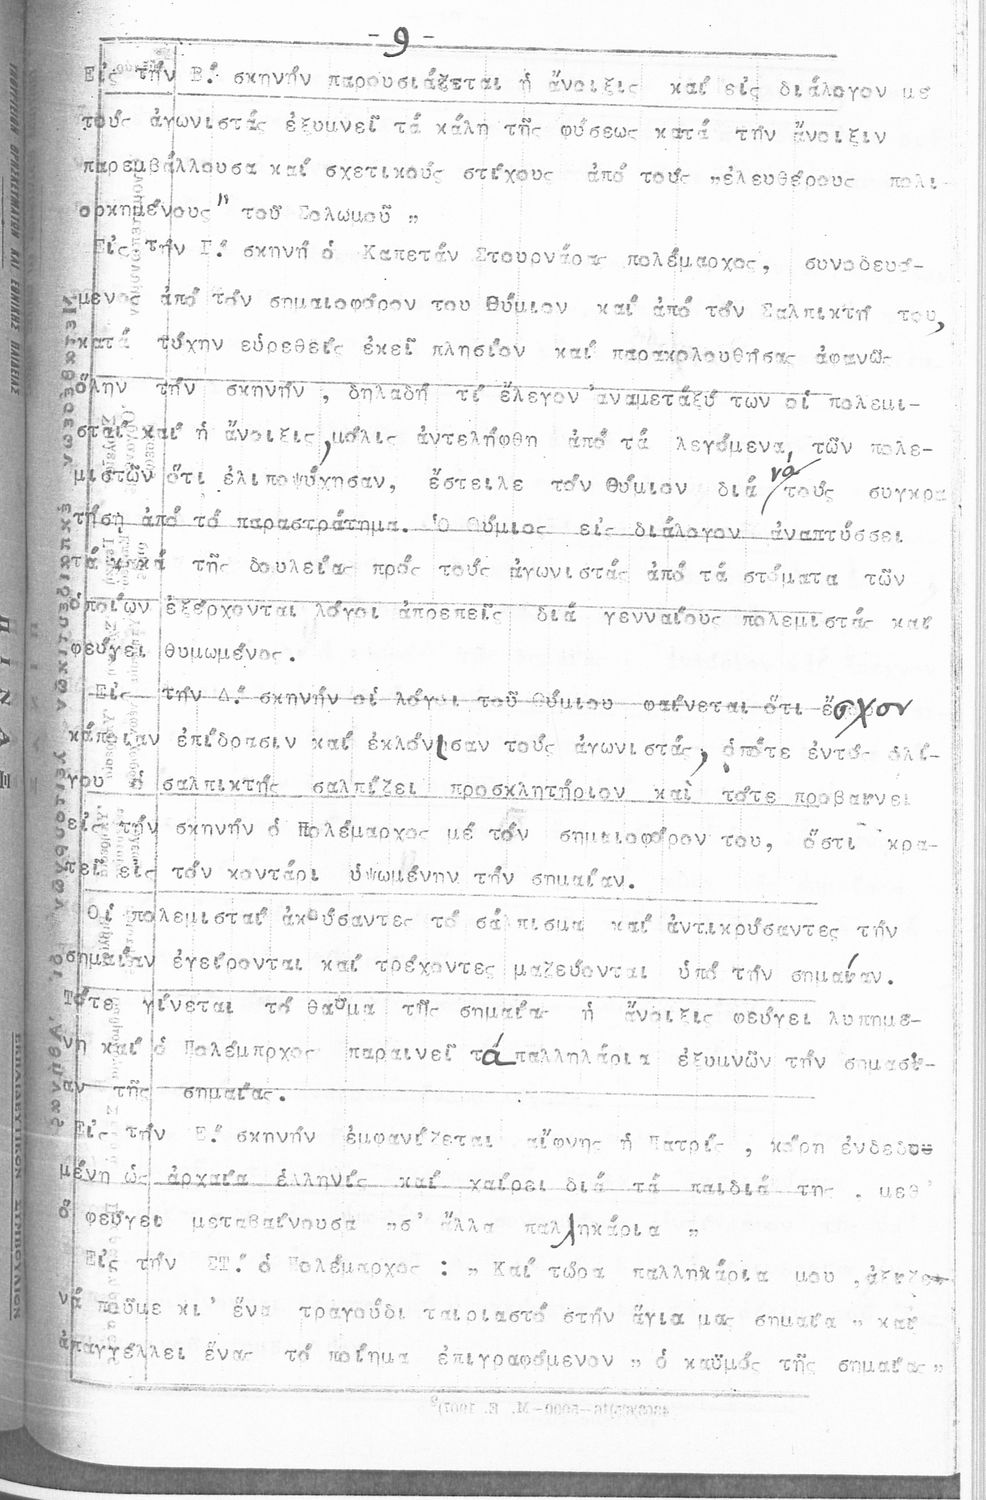 -9-
Εἰς τήν Β.΄ σκηνήν παρουσιάζεται ἡ ἄνοιξις καί εἰς διάλογον μέ
τούς ἀγωνιστάς ἐξυμνεῖ τά κάλη τῆς φύσεως κατά τήν ἄνοιξιν
παρεμβάλλουσα καί σχετικούς στίχους ἀπό τούς „ἐλευθέρους πολι-
ορκημένους" τοῦ Σολωμοῦ „
Εἰς τήν Γ.΄ σκηνή ὁ Καπετάν Στουρνάρας πολέμαρχος, συνοδευό-
μενος ἀπό τόν σημαιοφόρον του Θύμιον καί ἀπό τόν Σαλπικτή του,
κατά τύχην εὑρεθείς ἐκεῖ πλησίον καί παρακολουθήσας ἀφανῶς
ὅλην τήν σκηνήν , δηλαδή τί ἔλεγον ἀναμετάξύ των οἱ πολεμι-
σταί καί ἡ ἄνοιξις, μόλις ἀντελήφθη ἀπό τά λεγόμενα, τῶν πολε-
μιστῶν ὅτι ἐλιποψύχησαν, ἔστειλε τόν Θύμιον διά νά τούς συγκρα
τήση ἀπό τό παραστράτημα. Ὁ Θύμιος εἰς διάλογον ἀναπτύσσει
τά κακά τῆς δουλείας πρός τούς ἀγωνιστάς ἀπό τά στόματα τῶν
ὁποίων ἐξέρχονται λόγοι ἀπρεπεῖς διά γενναίους πολεμιστάς καί
φεύγει θυμωμένος.
Εἰς τήν Δ.΄ σκηνήν οἱ λόγοι τοῦ Θύμιου φαίνεται ὅτι ἔσχον
κάποιαν ἐπίδρασιν καί ἐκλόνισαν τούς ἀγωνιστάς, ὁπότε ἐντός ὀλί-
γου ὁ σαλπικτής σαλπίζει προσκλητήριον καί τότε προβαίνει
εἰς τήν σκηνήν ὁ Πολέμαρχος μέ τόν σημαιοφόρον του, ὅστι κρα-
τεῖ εἰς τόν κοντάρι ὑψωμένην τήν σημαίαν.
Οἱ πολεμισταί ἀκούσαντες τό σάλπισμα καί ἀντικρύσαντες τήν
σημαίαν ἐγείρονται καί τρέχοντες μαζεύονται ὑπό τήν σημαίαν.
Τότε γίνεται τό θαῦμα τῆς σημαίας ἡ ἄνοιξις φεύγει λυπημέ-
νη καί ὁ Πολέμπρχος παραινεῖ τά παλληλάρια ἐξυμνῶν τήν σημασί-
αν τῆς σημαίας.
Εἰς τήν Ε.΄ σκηνήν ἐμφανίζεται αἴφνης ἡ Πατρίς , κόρη ἐνδεδυ-
μένη ὡς ἀρχαία ἑλληνίς καί χαίρει διά τά παιδιά της . μεθ'
ὅ φεύγει μεταβαίνουσα „σ' ἄλλα παλληκάρια „
Εἰς τήν ΣΤ.΄ ὁ Πολέμαρχος : „ Καί τώρα παλληκάρια μου , ἀξίζει
νά ποῦμε κι' ἕνα τραγούδι ταιριαστό στήν ἅγια μας σημαία „ καί
ἀπαγγέλλει ἕνας τό ποίημα ἐπιγραφόμενον „ ὁ καϋμός τῆς σημαίας„